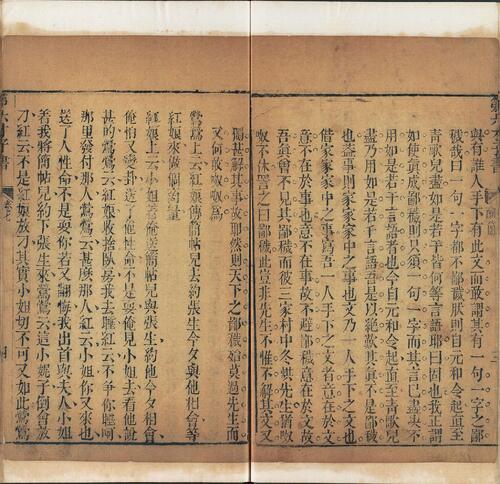 與有誰人手下有此文而敢謂其有一句一字之鄙
穢哉曰一句一字都不鄙穢然則自元和令起直至
青歌兒盡如是若干皆何等言語耶曰固也我正謂
如使真成鄙穢則只須一句一字而其言已盡決不
用如是若干言語者也今自元和令起直至青歌兒
盡乃用如是若干言語吾是以絕歎其真不是鄙穢
也蓋事則家家家中之事也文乃一人手下之文也
借家家家中之事寫吾一人手下之文者意在於文
意不在於事也意不在事故不避鄙穢意在於文故
吾真曾不見其鄙穢而彼三家村中冬烘先生猶呶
呶不休詈之曰鄙穢此豈非先生不惟不解其文又
獨甚解其事故耶然則天下之鄙穢殆莫過先生而
又何敢呶呶爲
鶯鶯上云紅娘傳簡帖兒去約張生今夕與他相會等
紅娘來做個商量
紅娘上云小姐着俺送簡帖兒與張生約他今夕相會
俺怕又變卦送了他性命不是耍俺見小姐去看他說
甚的鶯鶯云紅娘收拾臥房我去睡紅云不爭你睡呵
那里發付那人鶯鶯云甚麼那人紅云小姐你又來也
送了人性命不是耍你若又翻悔我出首與夫人小姐
着我將簡帖兒約下張生來鶯鶯云這小妮子倒會放
刁紅云不是紅娘放刁其實小姐切不可又如此鶯鶯
第六才子書